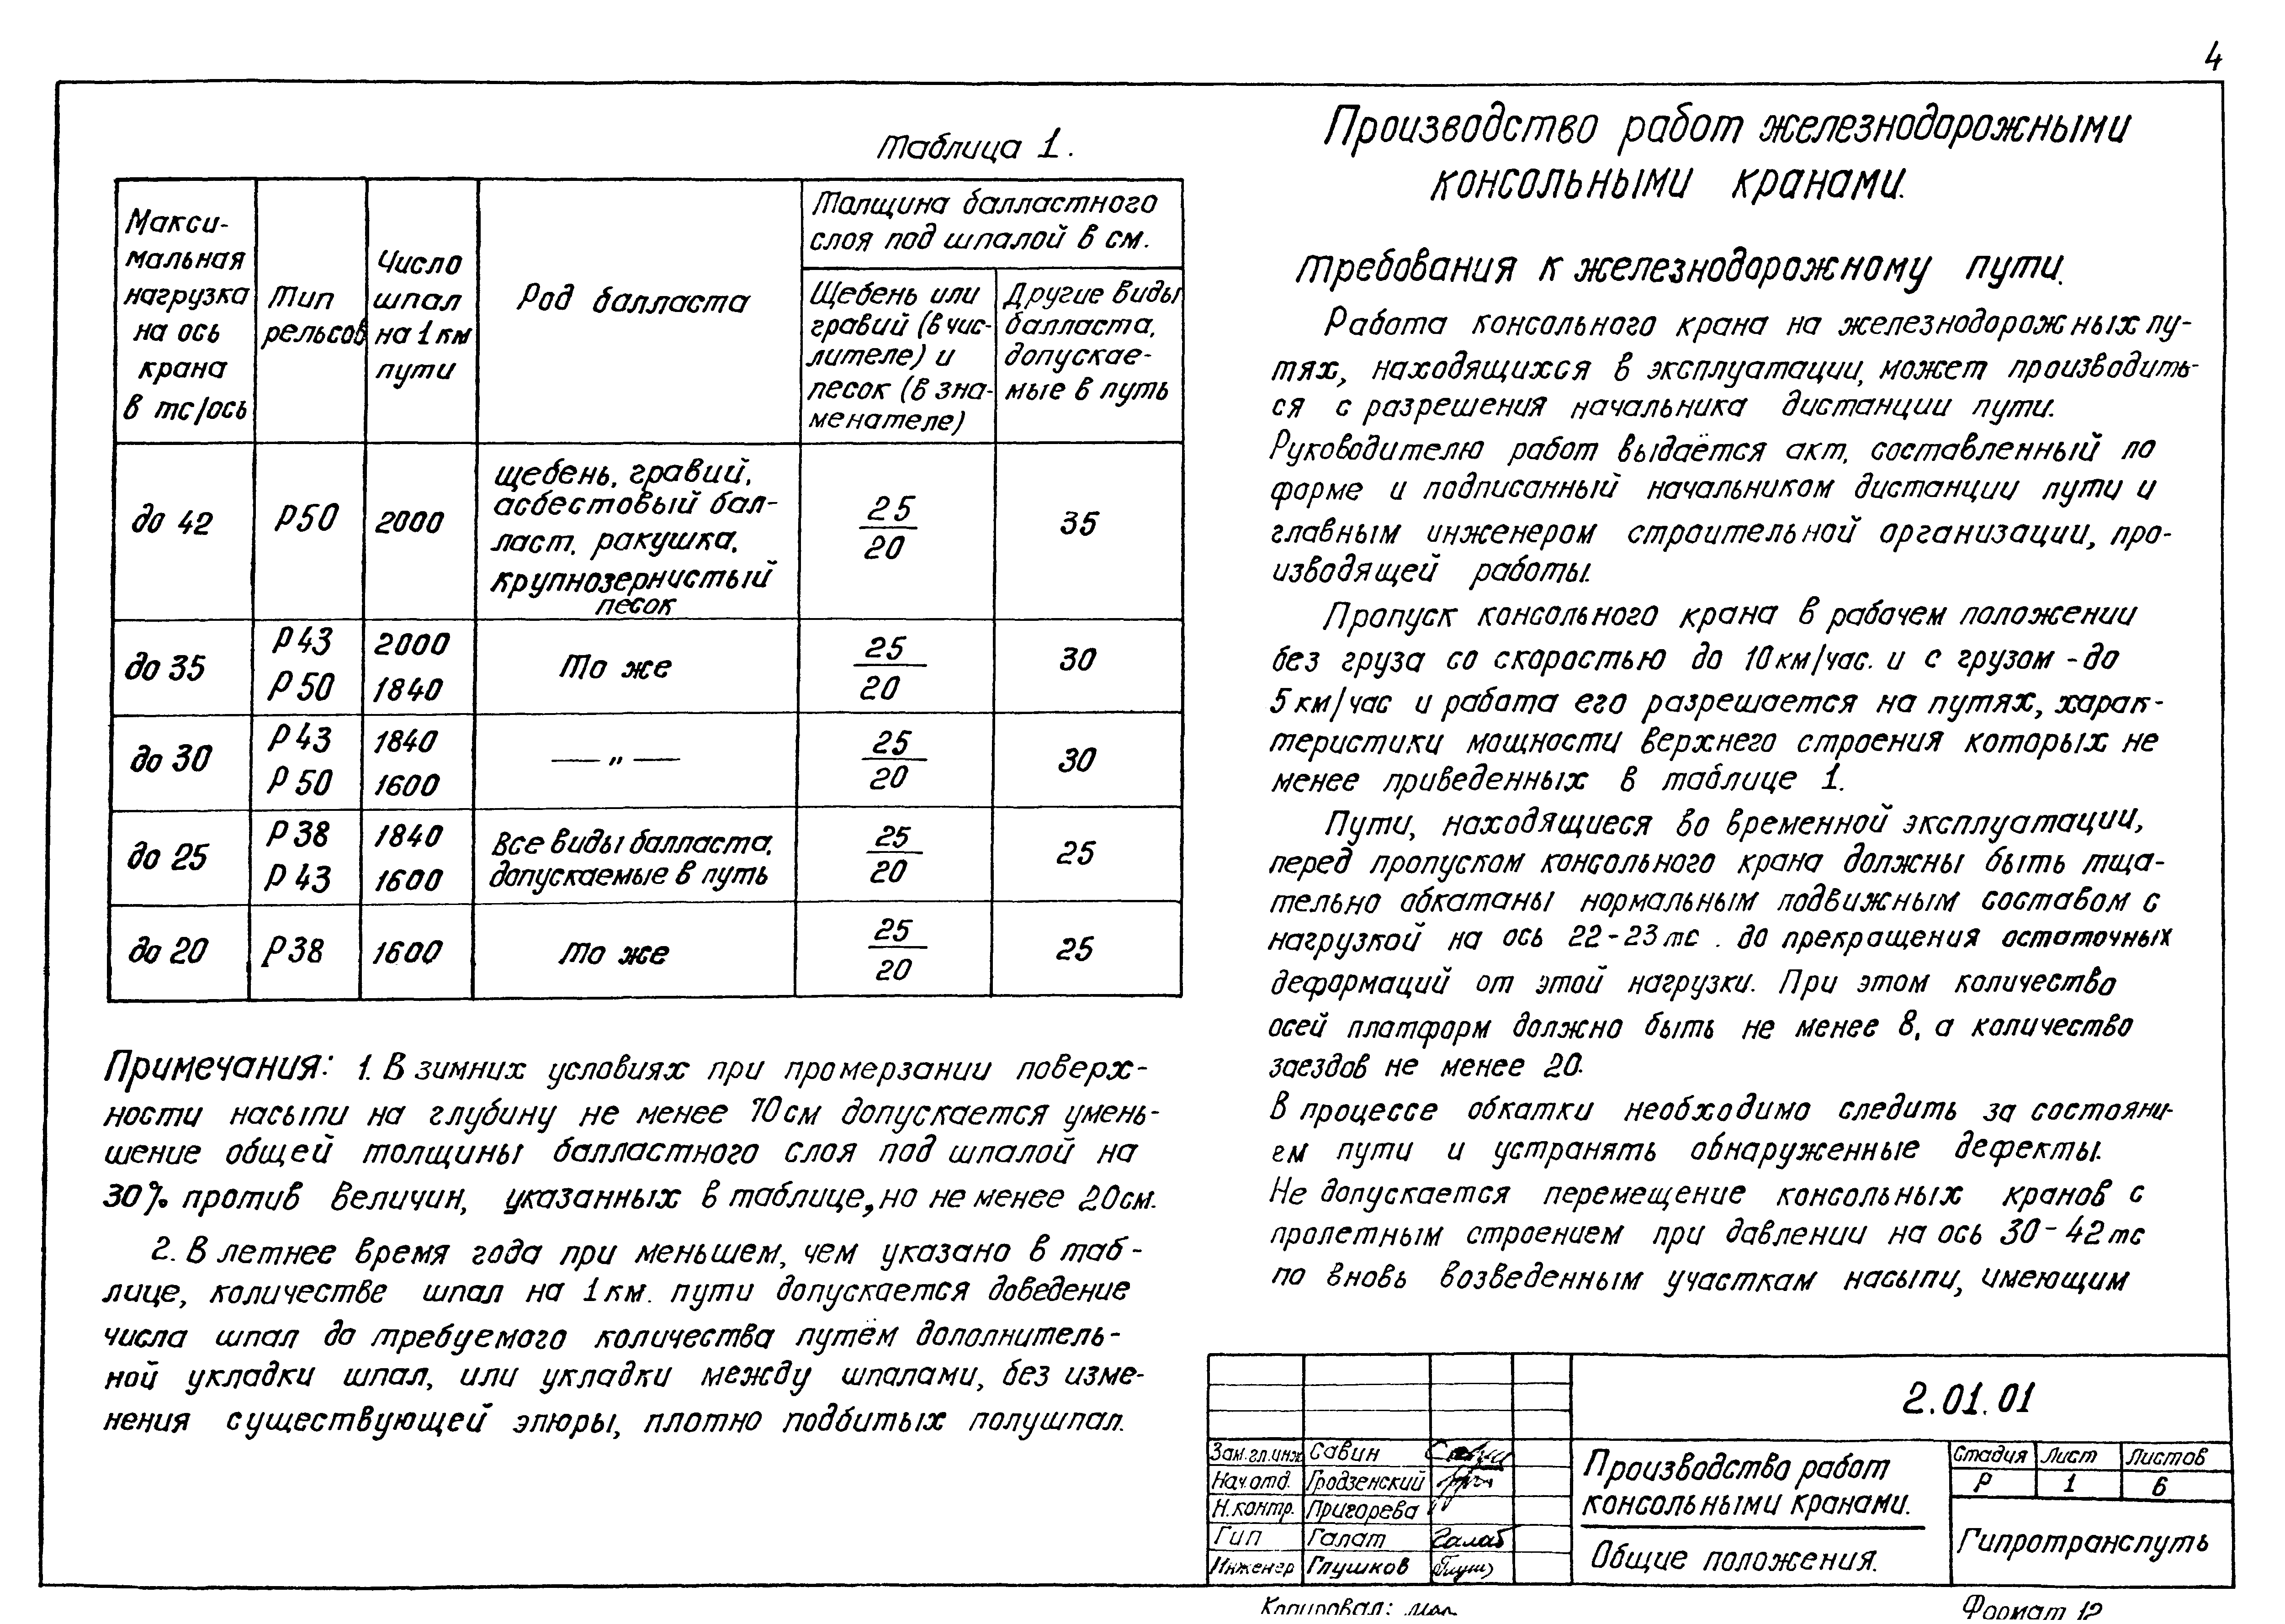 4
Таблица 1.
Макси-
мальная
нагрузка
на ось
крана
в тс/ось
Тип
рельсов
Число
шпал
на 1 км
пути
Род балласта
Толщина балластного
слоя под шпалой в см.
Щебень или
гравий (в чис-
лителе) и
песок (в зна-
менателе)
Другие виды
балласта,
допускае-
мые в путь
до 42
Р50
2000
щебень, гравий,
асбестовый бал-
ласт, ракушка,
крупнозернистый
песок
25
20
35
до 35
Р43
Р50
2000
1840
То же
25
20
30
до 30
Р43
Р50
1840
1600
— „ —
25
20
30
до 25
Р38
Р43
1840
1600
Все виды балласта,
допускаемые в путь
25
20
25
до 20
Р38
1600
То же
25
20
25
Примечания: 1. В зимних условиях при промерзании поверх-
ности насыпи на глубину не менее 70см допускается умень-
шение общей толщины балластного слоя под шпалой на
30% против величин, указанных в таблице, но не менее 20см.
2. В летнее время года при меньшем, чем указано в таб-
лице, количестве шпал на 1км. пути допускается доведение
числа шпал до требуемого количества путём дополнитель-
ной укладки шпал, или укладки между шпалами, без изме-
нения существующей эпюры, плотно подбитых полушпал.
Производство работ железнодорожными
консольными кранами.
Требования к железнодорожному пути.
Работа консольного крана на железнодорожных пу-
тях, находящихся в эксплуатации, может производить-
ся с разрешения начальника дистанции пути.
Руководителю работ выдаётся акт, составленный по
форме и подписанный начальником дистанции пути и
главным инженером строительной организации, про-
изводящей работы.
Пропуск консольного крана в рабочем положении
без груза со скоростью до 10км/час. и с грузом - до
5км/час и работа его разрешается на путях, харак-
теристики мощности верхнего строения которых не
менее приведенных в таблице 1.
Пути, находящиеся во временной эксплуатации,
перед пропуском консольного крана должны быть тща-
тельно обкатаны нормальным подвижным составом с
нагрузкой на ось 22-23тс. до прекращения остаточных
деформаций от этой нагрузки. При этом количество
осей платформ должно быть не менее 8, а количество
заездов не менее 20.
В процессе обкатки необходимо следить за состояни-
ем пути и устранять обнаруженные дефекты.
Не допускается перемещение консольных кранов с
пролетным строением при давлении на ось 30-42тс
по вновь возведенным участкам насыпи, имеющим
2.01.01
Зам.гл.инж Савин
Нач.отд. Гродзенский
Н.контр. Пригорева
Гип Галат Галат
Инженер Глушков
Производство работ
консольными кранами.
Общие положения.
Стадия Лист Листов
Р 1 6
Гипротранспуть
Копировал:
Формат 12